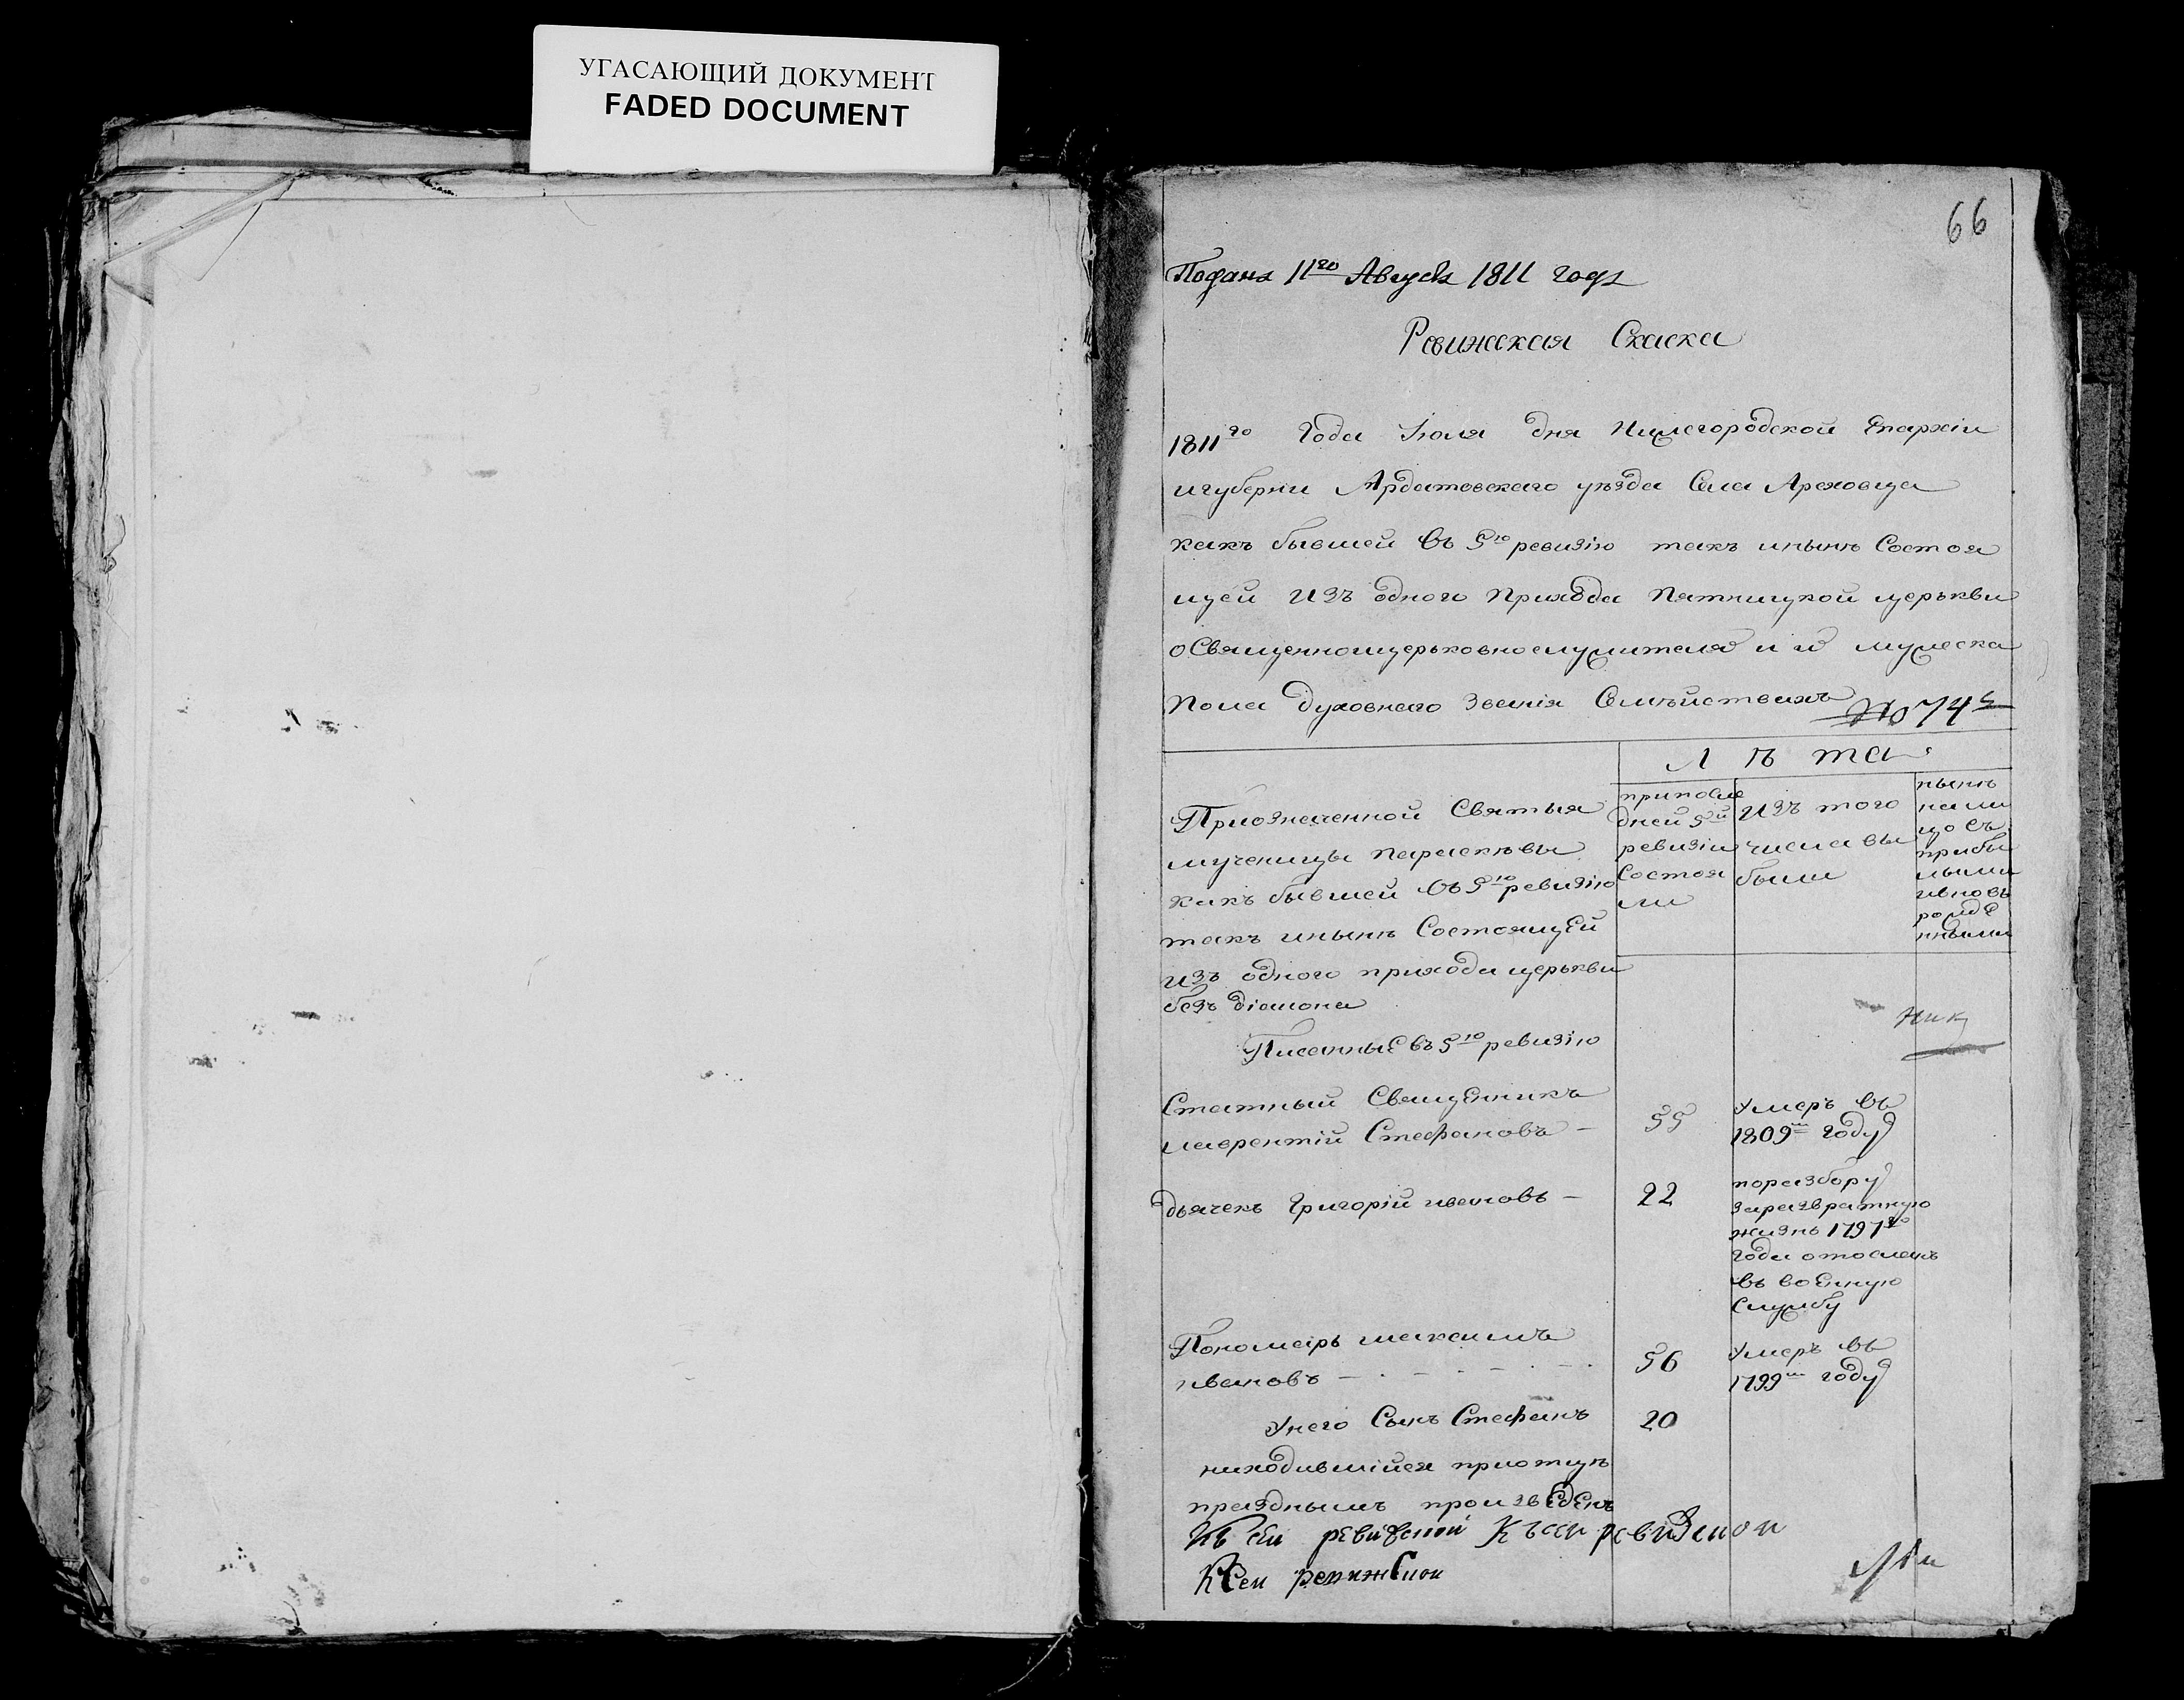 УГАСАЮЩИЙ ДОКУМЕНТ
FADED DOCUMENT
66
Подана 11го Августа 1811 года
Ревижская Скаска
1811го Года Июля дня Нижегородской Епархіи
игуберни Ардатовскаго уѣзда Села
какъ бывшей въ 5ю ревизію такъ инынѣ Состоя
щей изъ одного Прихода Пятницкой церькви
оСвященноицерьковнослужителях и их мужеска
Пола Духовнаго Званія Семѣйствахъ
№ 74й
Лѣта
Приозначенной Святыя
мученицы параскѣвы
какъ бывшей въ 5ю ревизію
такъ инынѣ Состоящей
изъ одного прихода церькви
безъ діакона
припослѣ
дней 5й
ревизіи
Состоя
ли
изъ того
числа вы
были
нынѣ
нали
цо съ
прибы
лыми
ивновь
рожде
нными
Писанные въ 5ю ревизію
Статный Священникъ
лаврентій Стефановъ —
55
Умеръ въ
1809м году
дьячекъ Григорій ивановъ —
22
поразбору
заразвратную
жизнь 1797го
года отосланъ
въ военную
Службу
Пономарь максимъ
ивановъ —
56
Умеръ въ
1799м году
Унего Сынъ Стефанъ
20
находившійся приотцѣ
празднымъ произведенъ
Къ сей ревизской Къ сеи ревизской
К Сеи